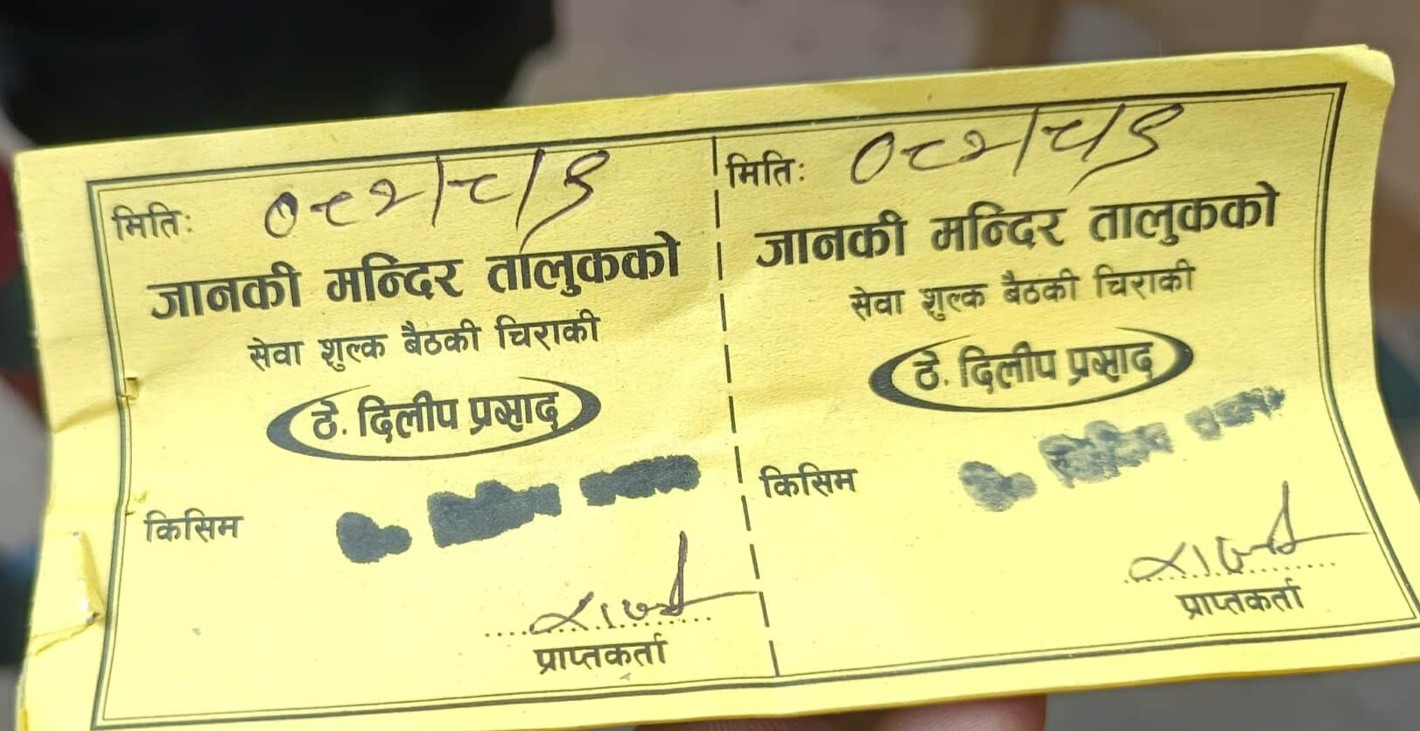 मितिः ०८२/८/९
जानकी मन्दिर तालुकको
सेवा शुल्क बैठकी चिराकी
ठे. दिलीप प्रसाद
किसिम
प्राप्तकर्ता
मितिः ०८२/८/९
जानकी मन्दिर तालुकको
सेवा शुल्क बैठकी चिराकी
ठे. दिलीप प्रसाद
किसिम
प्राप्तकर्ता